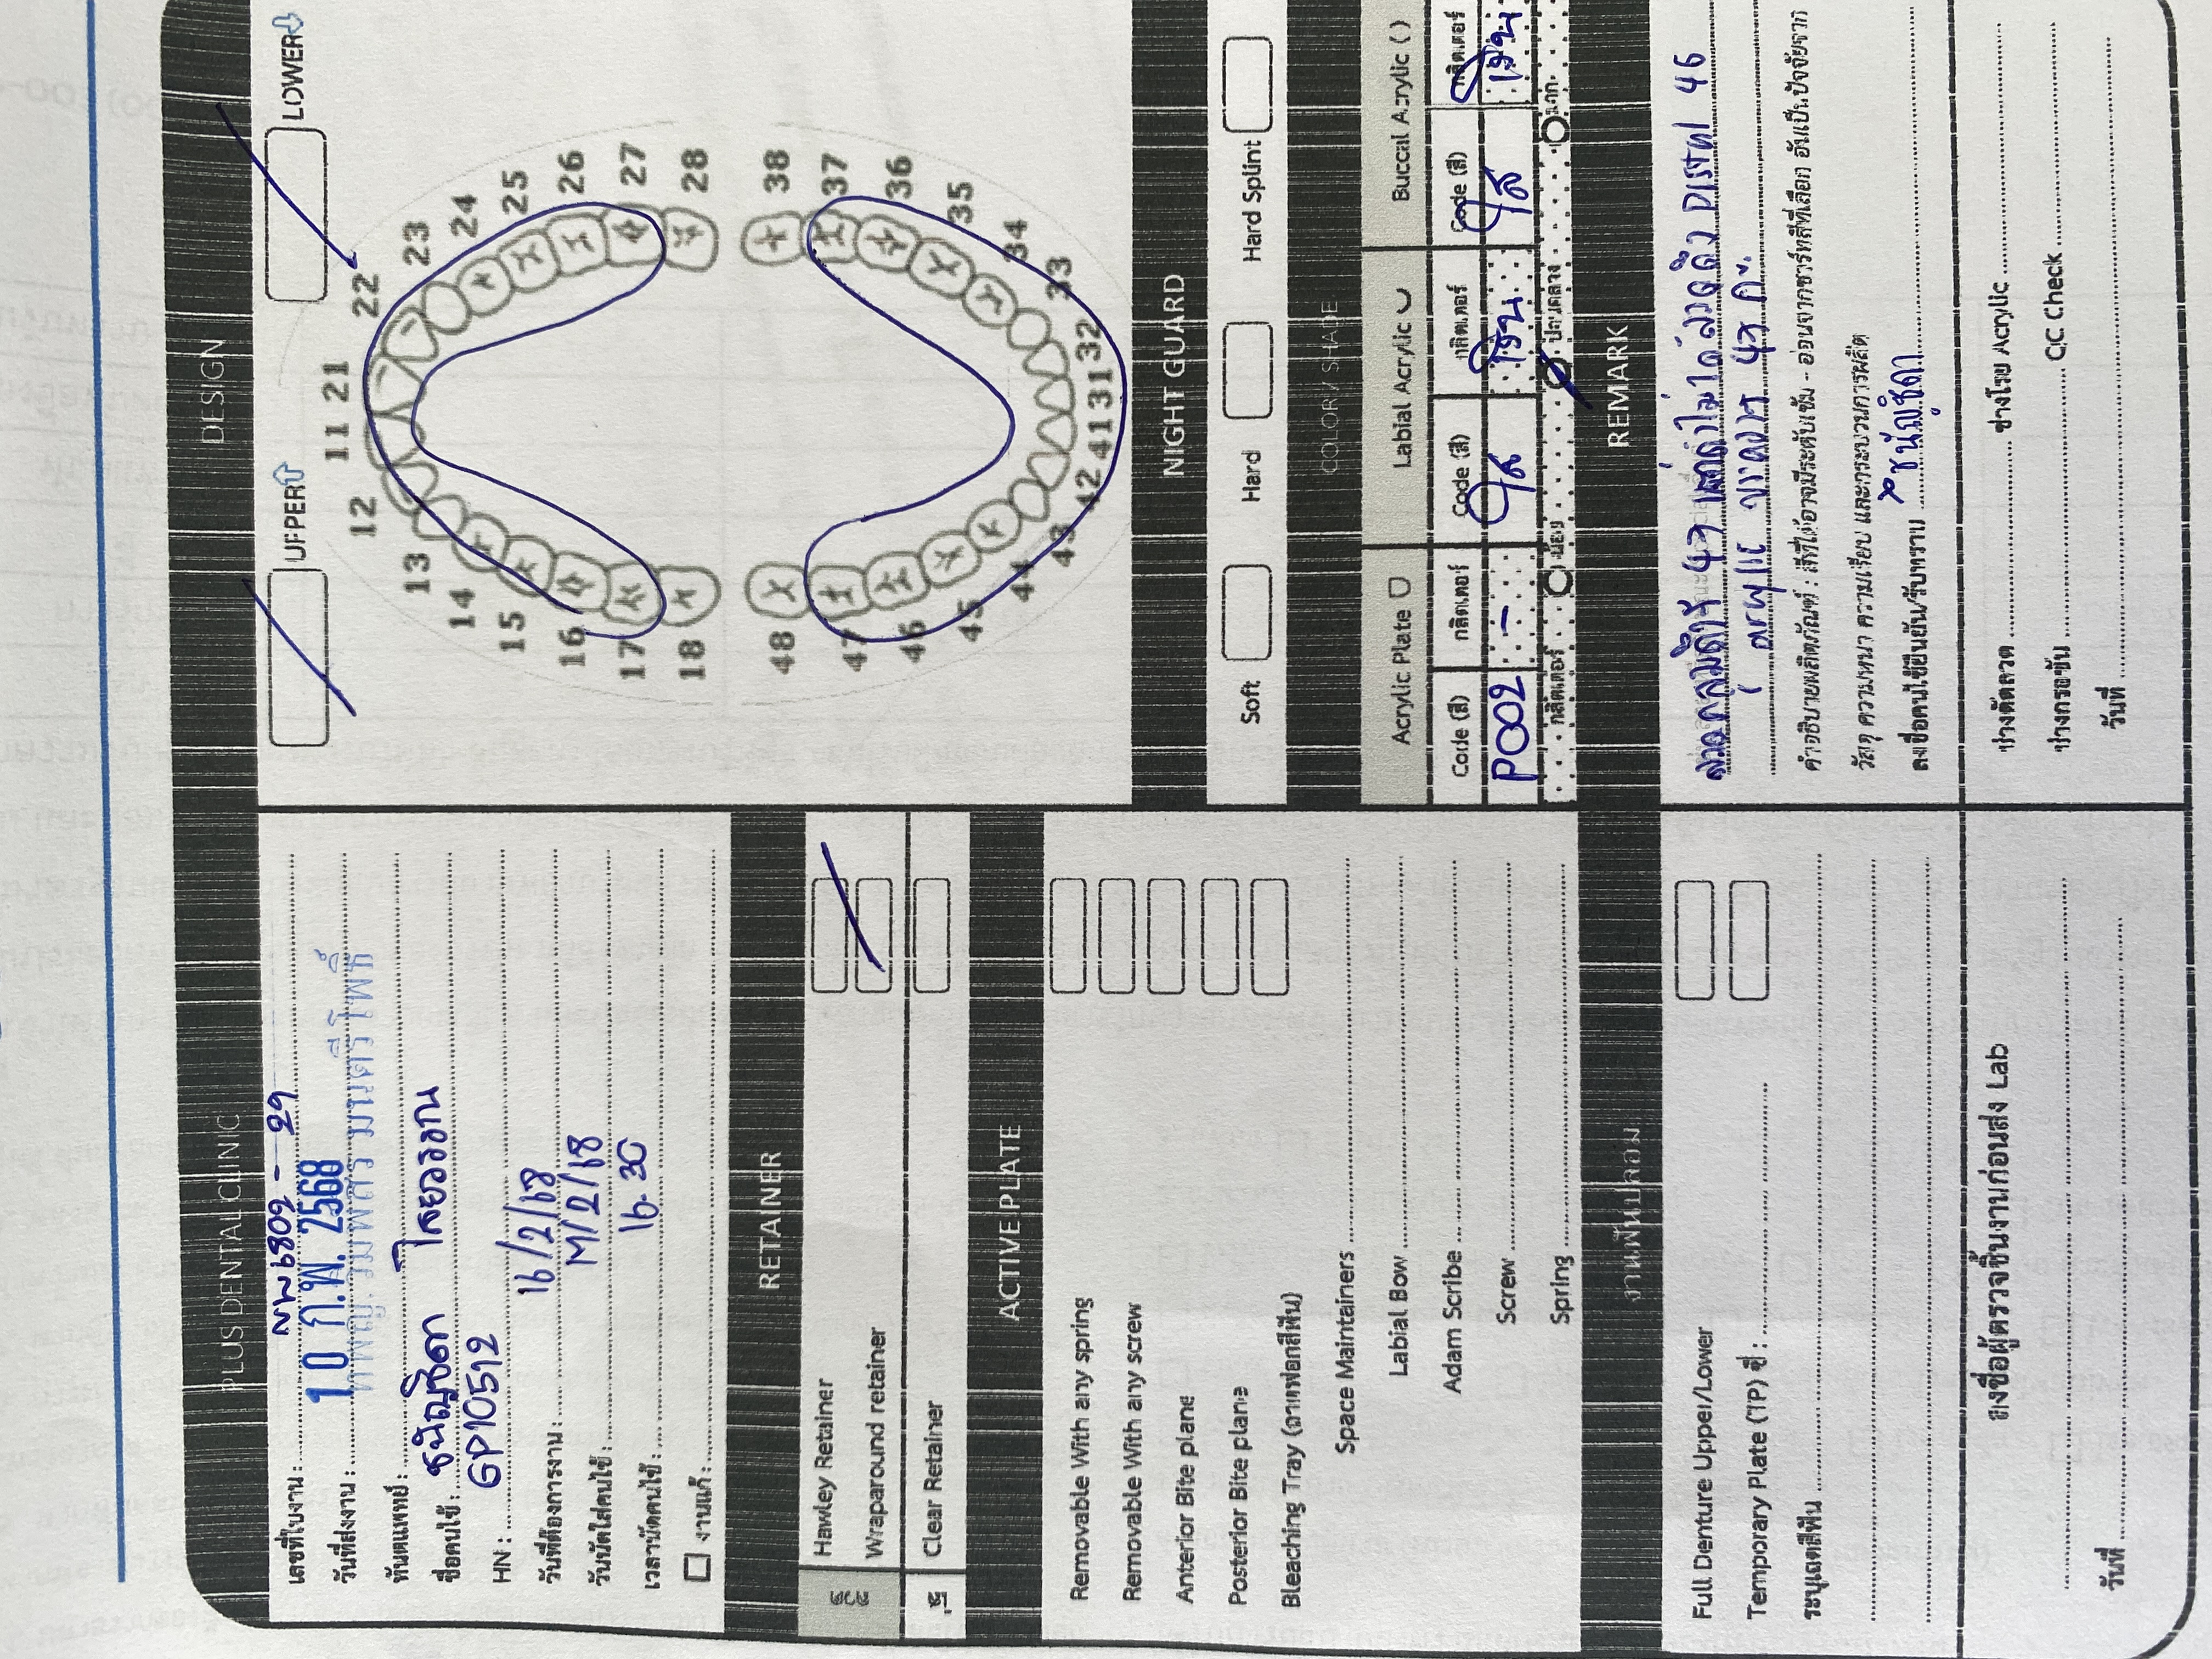 PLUS DENTAL CLINIC
เลขที่ใบงาน : 6802 - 29
วันที่ส่งงาน : 10 ก.พ. 2568
ทันตแพทย์ : มนตรีโพธิ์
ชื่อคนไข้ : ชนัญชิดา ไสยวรรณ
HN : GP10512
วันที่ต้องการงาน : 16/2/68
วันนัดใส่คนไข้ : /2/68
เวลานัดคนไข้ : 16.30
งานแก้ :
RETAINER
ลวด
Hawley Retainer
Wraparound retainer
ใส
Clear Retainer
ACTIVE PLATE
Removable With any spring
Removable With any screw
Anterior Bite plane
Posterior Bite plane
Bleaching Tray (ถาดฟอกสีฟัน)
Space Maintainers
Labial Bow
Adam Scribe
Screw
Spring
งานฟันปลอม
Full Denture Upper/Lower
Temporary Plate (TP) ซี่ :
ระบุเฉดสีฟัน
ลงชื่อผู้ตรวจชิ้นงานก่อนส่ง Lab
วันที่
DESIGN
UPPER LOWER
11 21
12 22
13 23
14 24
15 25
16 26
17 27
18 28
48 38
47 37
46 36
45 35
44 34
43 33
42 41 31 32
NIGHT GUARD
Soft Hard Hard Splint
COLOR / SHADE
Acrylic Plate Labial Acrylic Buccal Acrylic ( )
Code (สี) กลิตเตอร์ Code (สี) กลิตเตอร์ Code (สี) กลิตเตอร์
P002 - ใส เงิน ใส เงิน
กลิตเตอร์ น้อย ปานกลาง มาก
REMARK
47 ลวดถึง Distal 46
acrylic 47
คำอธิบายผลิตภัณฑ์ : สีที่ได้อาจมีระดับเข้ม - อ่อนจากชาร์ทสีที่เลือก อันเป็นปัจจัยจาก
วัสดุ ความหนา ความเรียบ และกระบวนการผลิต
ลงชื่อคนไข้ยืนยัน/รับทราบ ชนัญชิดา
ช่างดัดลวด ช่างโรย Acrylic
ช่างกรอขัด QC Check
วันที่